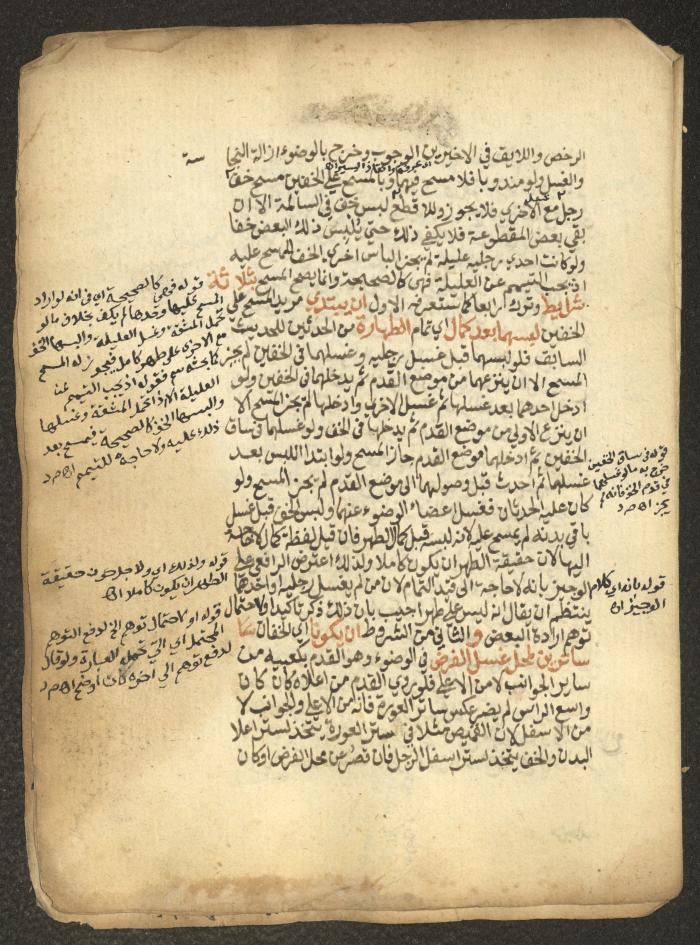 الرخص واللايق في الاخيرين الوجوب وخرج بالوضوء ازالة النجا
سة
والغسل ولو مندوبا فلا مسح فيهما وبالمسح على الخفين مسح خف
رجل مع الاخرى فلا يجوز وللاقطع لبس خف في السالمة الا ان
بقي بعض المقطوعة فلا يكفي ذلك حتى يلبس ذلك البعض خفا
ولو كانت احدى رجليه عليلة لم يجز الباس اخرى الخف للمسح عليه
اذ يجب التيمم عن العليلة فهي كالصحيحة وانما يصح المسح بثلاثة
شرايط وترك رابعا كما ستعرفه الاول ان يبتدي مريد المسح على
الخفين لبسهما بعد كمال اي تمام الطهارة من الحدثين للحديث
السابق فلو لبسهما قبل غسل رجليه وغسلهما في الخفين لم يجز
المسح الا ان ينزعهما من موضع القدم ثم يدخلهما في الخفين ولو
ادخل احدهما بعد غسلها ثم غسل الاخرى وادخلها لم يجز المسح الا
ان ينزع الاولى من موضع القدم ثم يدخلها في الخف ولو غسلهما في ساق
الخفين ثم ادخلهما موضع القدم جاز المسح ولو ابتدا اللبس بعد
غسلهما ثم احدث قبل وصولهما الى موضع القدم لم يجز المسح ولو
كان عليه الحدثان فغسل اعضاء الوضوء عنهما ولبس الخف قبل غسل
باقي بدنه لم يمسح عليه لانه لبسه قبل كمال الطهر فان قيل لفظة كمال لا حاجة
اليها لان حقيقة الطهر ان يكون كاملا ولذلك اعترض الرافعي على
الوجيز بانه لا حاجة الى قيد التمام لان من لم يغسل رجليه او احدهما
ينتظم ان يقال انه ليس على طهر اجيب بان ذلك ذكر تاكيدا او لاحتمال
توهم ارادة البعض والثاني من الشروط ان يكونا اي الخفان
ساترين لمحل غسل الفرض في الوضوء وهو القدم بكعبيه من
ساير الجوانب لا من الاعلى فلو روي القدم من اعلاه كان كان
واسع الراس لم يضر عكس ساتر العورة فانه من الاعلى والجوانب لا
من الاسفل لان القميص مثلا في ستر العورة يتخذ لستر اعلا
البدن والخف يتخذ لستر اسفل الرجل فان قصر عن محل الفرض او كان
قوله فهي كالصحيحة اي في انه لو اراد
المسح عليها وحدها لم يكف بخلاف ما لو
تحمل المشقة وغسل العليلة والبسها الخف
مع الاخرى على طهر كامل فيجوز له المسح
فقوله اذ يجب التيمم عن
العليلة اي اذا لم يتحمل المشقة وغسلها
والبسها الخف كالصحيحة فيمسح بعد
ذلك عليه ولا حاجة للتيمم اه م د
قوله ولذلك اي ولاجل كون حقيقة
الطهر ان يكون كاملا اه
قوله او لاحتمال توهم الخ لدفع التوهم
المحتمل اي الذي تحمله العبارة ولو قال
لدفع توهم الى اخره كان اوضح اه م د
قوله في ساق الخفين
خرج به ما لو غسلهما
في قدم الخف فانه لم
يجز اه م د
قوله بانه اي كلام
الوجيز اه